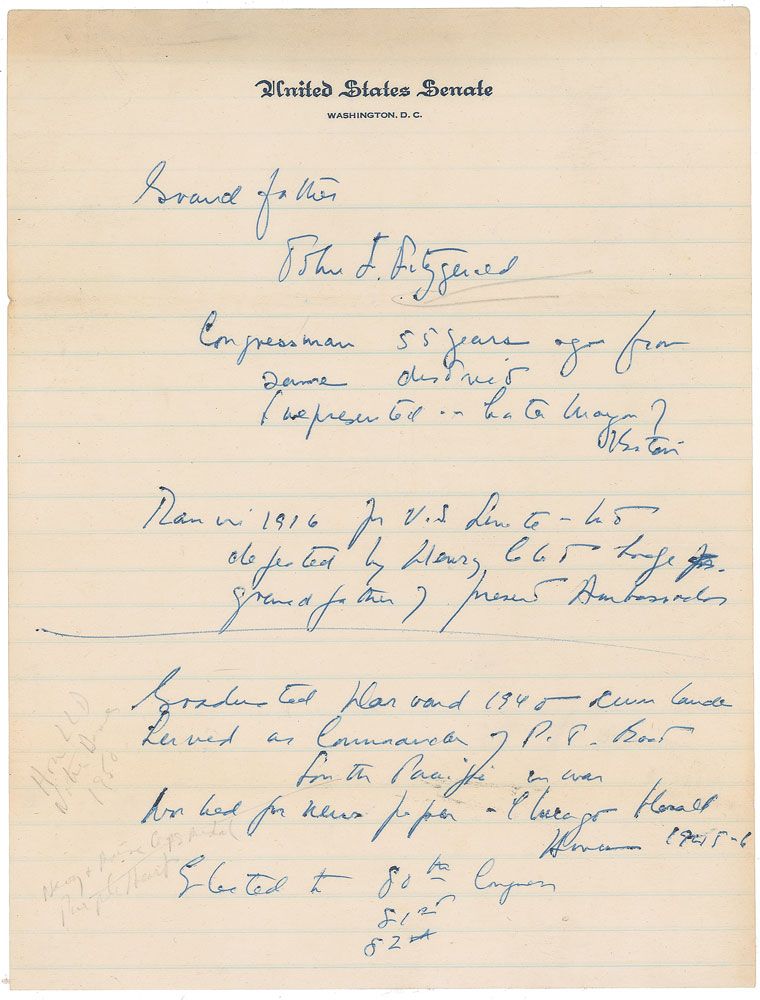 United States Senate
WASHINGTON, D. C.
Grand father
John F. Fitzgerald
Congressman 55 years ago from
same district
I represented - Later Mayor of
Boston
Ran in 1916 for U.S. Senate -
defeated by Henry Cabot Lodge
grandfather of present Ambassador
Graduated Harvard 1940 cum laude
Served as Commander of P.T. Boat
South Pacific in war
Worked for news paper - Chicago Herald
1945-6
Elected to 80th Congress
81st
82nd
Hon LLD
Notre Dame
1950
Navy + Marine Corps Medal
Purple Heart